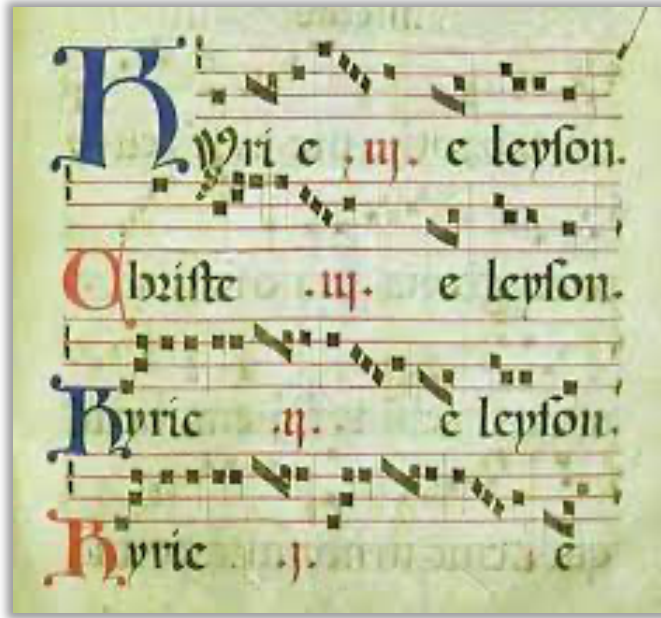 Kyri e .iij. e leyſon.
Chriſte .iij. e leyſon.
Kyrie .ij. e leyſon.
Kyrie .j. e